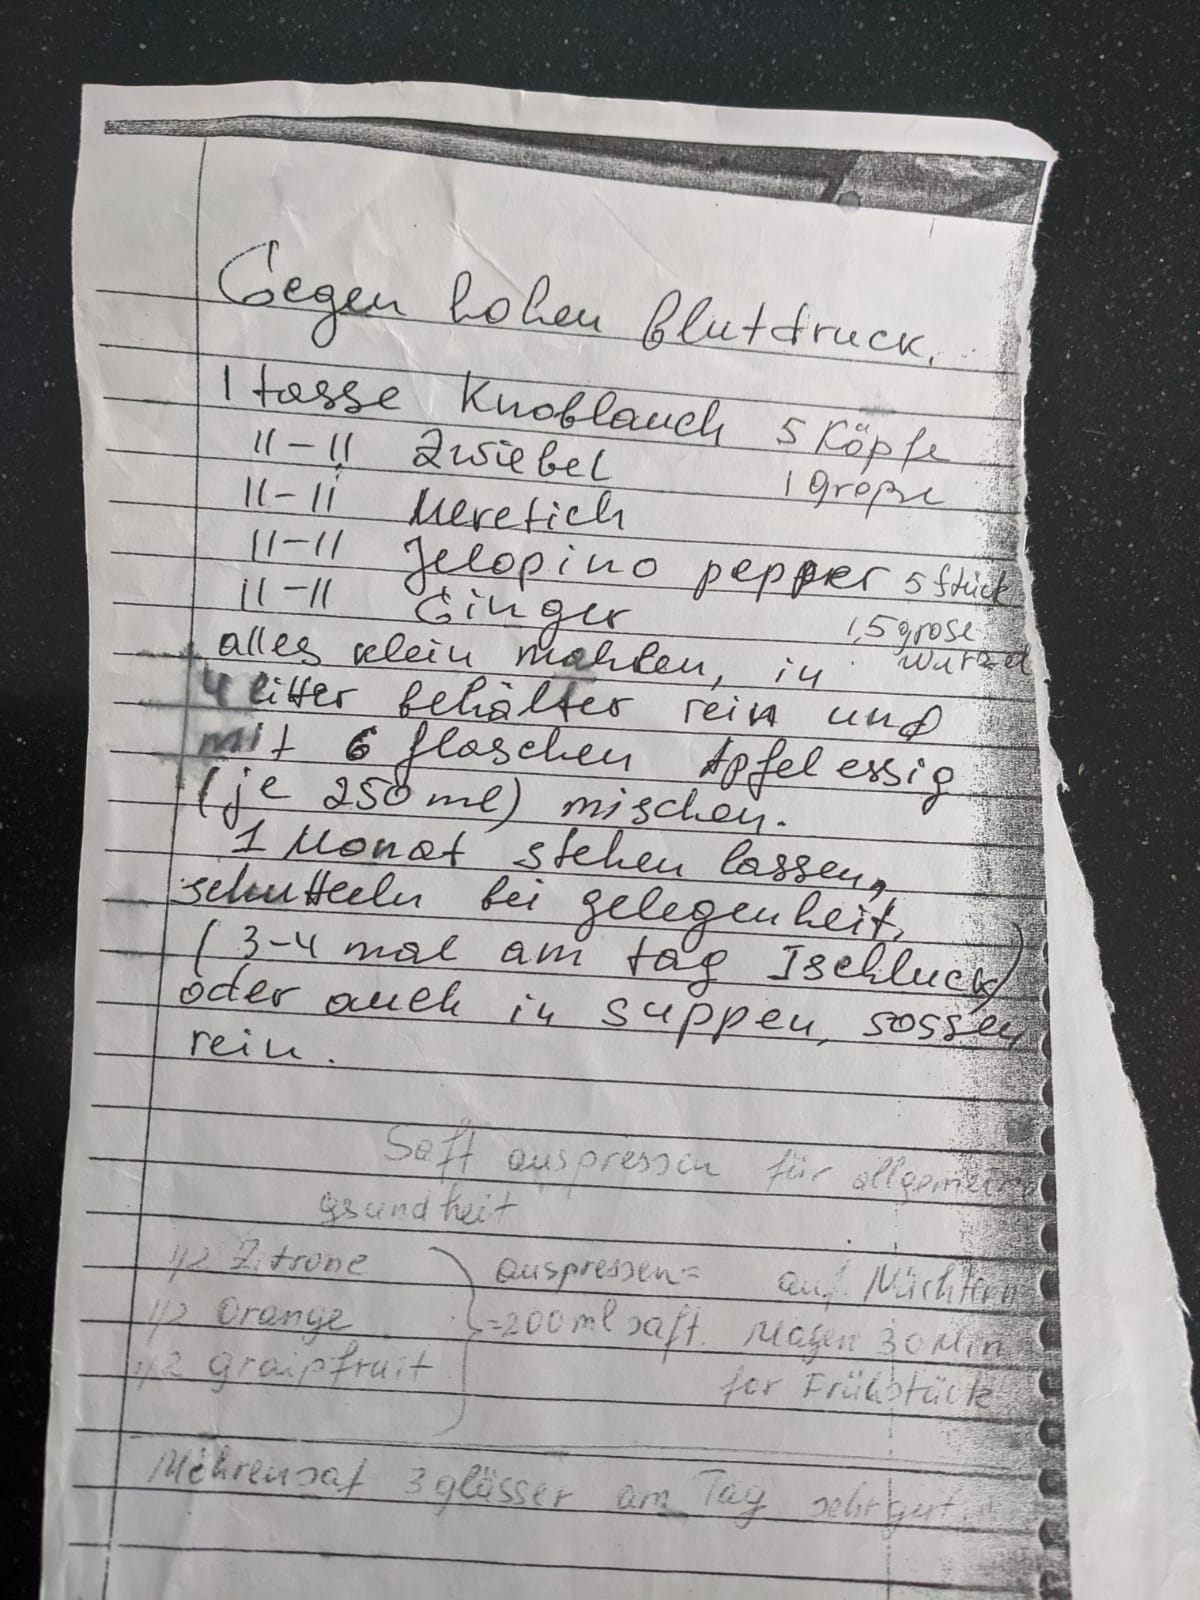 Gegen hohen blutdruck.
1 tasse Knoblauch 5 Köpfe
11-11 Zwiebel 1 große
11-11 Meretich
11-11 Jelopino pepper 5 stück
11-11 Ginger 1,5 grose wurzel
alles klein mahlen, in
4 litter behälter rein und
mit 6 flaschen Apfelessig
(je 250 ml) mischen.
1 Monat stehen lassen,
schutteln bei gelegenheit,
(3-4 mal am tag 1schluck)
oder auch in suppen, sossen
rein.
Saft auspressen für allgemeine
gsundheit
1/2 Zitrone auspressen= auf Nüchtern
1/2 Orange =200ml saft. Magen 30 Min
1/2 graipfruit for Frühstück
Möhrensaf 3 glässer am Tag sehr gut.